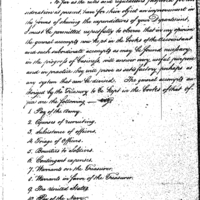 To far as the rules and regulations proposed for con
sideration at present, may have effect an improvement in
the forms of stating the expenditures of your Department,
I must be permitted respectfully to observe that in my opinion
the general accounts now kept in the Books of the Accountant
and such subordinate accounts as may be found necessary,
in the progress of business, will answer every useful purpose
and in practice they will prove as satisfactory, perhaps as
any system that can be devised. The general accounts as
by the Treasury to be kept in the Books of this of
fice are the following
1. Pay of the Army.
2. Expenses of recruiting.
3. Subsistence of officers.
4. Forage of officers.
5. Bounties to Soldiers
6. Contingent expenses.
7. Warrants on the Treasurer.
8. Warrants in favor of the Treasurer.
9. The United States
10. Pay of the Navy